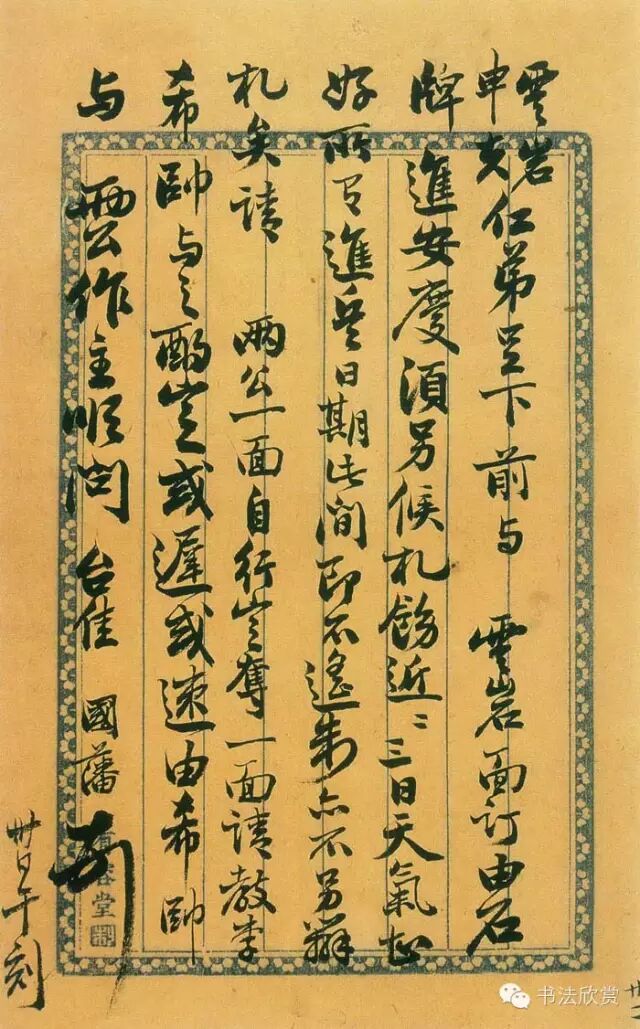 雲岩
申夫仁弟足下前与 雲岩面订由石
牌進安慶須另候札飭近二三日天氣甚
好所有進兵日期此間即不遥制亦不另辦
札矣請 兩公一面自行定奪一面請教李
希帥与之酌定或遲或速由希帥
与 兩公作主順問 台佳 國藩
卅日午刻
书法欣赏